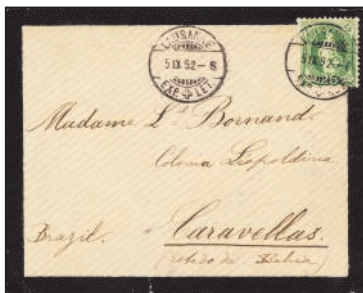 LAUSANNE
5 IX 92-8
EXP. LET.
5 IX 92-
25
Madame Ls. Bornand
Colonia Leopoldina
Caravellas.
Brazil.
(estado de Bahia)